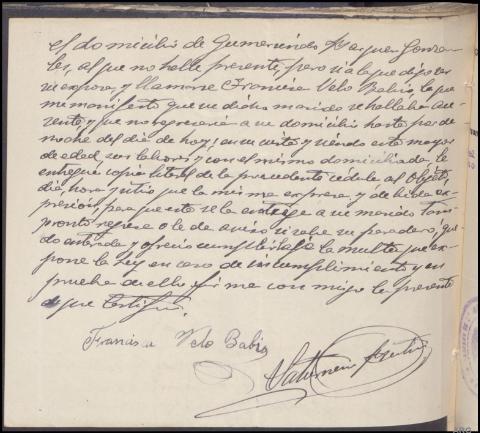 el domicilio de Gumersindo Vazquez Gonza-
les, al que no halle presente, pero si a la que dijo ser
su esposa, y llamarse Francisca Velo Babio, la que
me manifesto que su dicho marido se hallaba au-
sente, y que no regresaria a su domicilio hasta por la
noche del dia de hoy; en su vista y siendo esta mayor
de edad, sus labores y con el mismo domiciliada, le
entregue copia literal de la precedente cedula al objeto,
dia, hora y sitio que la misma expresa y debida ex-
presion, para que este se la entrege a su marido tan
pronto regrese o le de aviso si sabe su paradero, que-
do enterada y ofrecio cumplir bajo la multa que ex-
pone la Ley en caso de incumplimiento y en
prueba de ello firma con migo la presente
de que Certifico.
Francisca Velo Babio